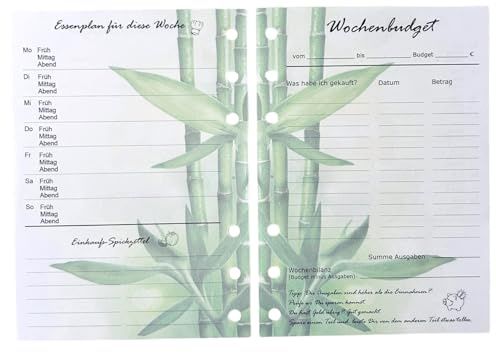 Essenplan für diese Woche
Mo Früh
Mittag
Abend
Di Früh
Mittag
Abend
Mi Früh
Mittag
Abend
Do Früh
Mittag
Abend
Fr Früh
Mittag
Abend
Sa Früh
Mittag
Abend
So Früh
Mittag
Abend
Einkaufs-Spickzettel
Wochenbudget
vom bis Budget €
Was habe ich gekauft? Datum Betrag
Summe Ausgaben
Wochenbilanz
(Budget minus Ausgaben)
Tipp: Die Ausgaben sind höher als die Einnahmen?
Prüfe wo Du sparen kannst.
Du hast Geld übrig? Gut gemacht.
Spare einen Teil und leiste Dir von dem anderen Teil etwas tolles.